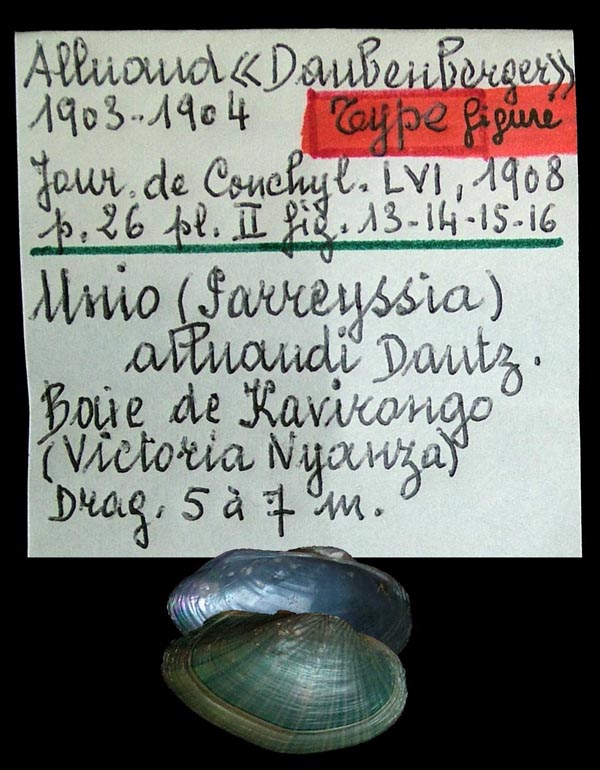 Alluaud «Daubenberger»
1903-1904 Type figuré
Jour. de Conchyl. LVI, 1908
p. 26 pl. II fig. 13-14-15-16
Unio (Parreyssia)
alluaudi Dautz.
Baie de Kavirongo
(Victoria Nyanza)
Drag. 5 à 7 m.